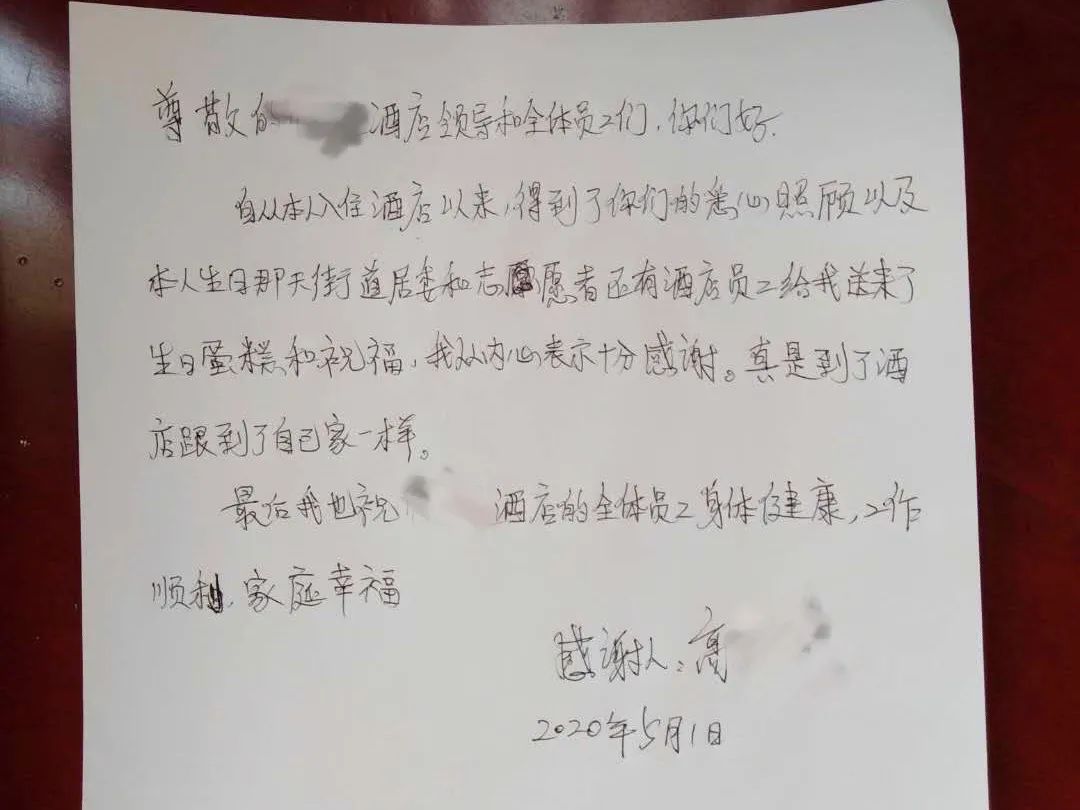 尊敬的 酒店领导和全体员工们,你们好.
自从本人入住酒店以来,得到了你们的悉心照顾以及
本人生日那天街道居委和志愿者还有酒店员工给我送来了
生日蛋糕和祝福,我从内心表示十分感谢。真是到了酒
店跟到了自己家一样。
最后我也祝 酒店的全体员工身体健康,工作
顺利、家庭幸福
感谢人:高
2020年5月1日